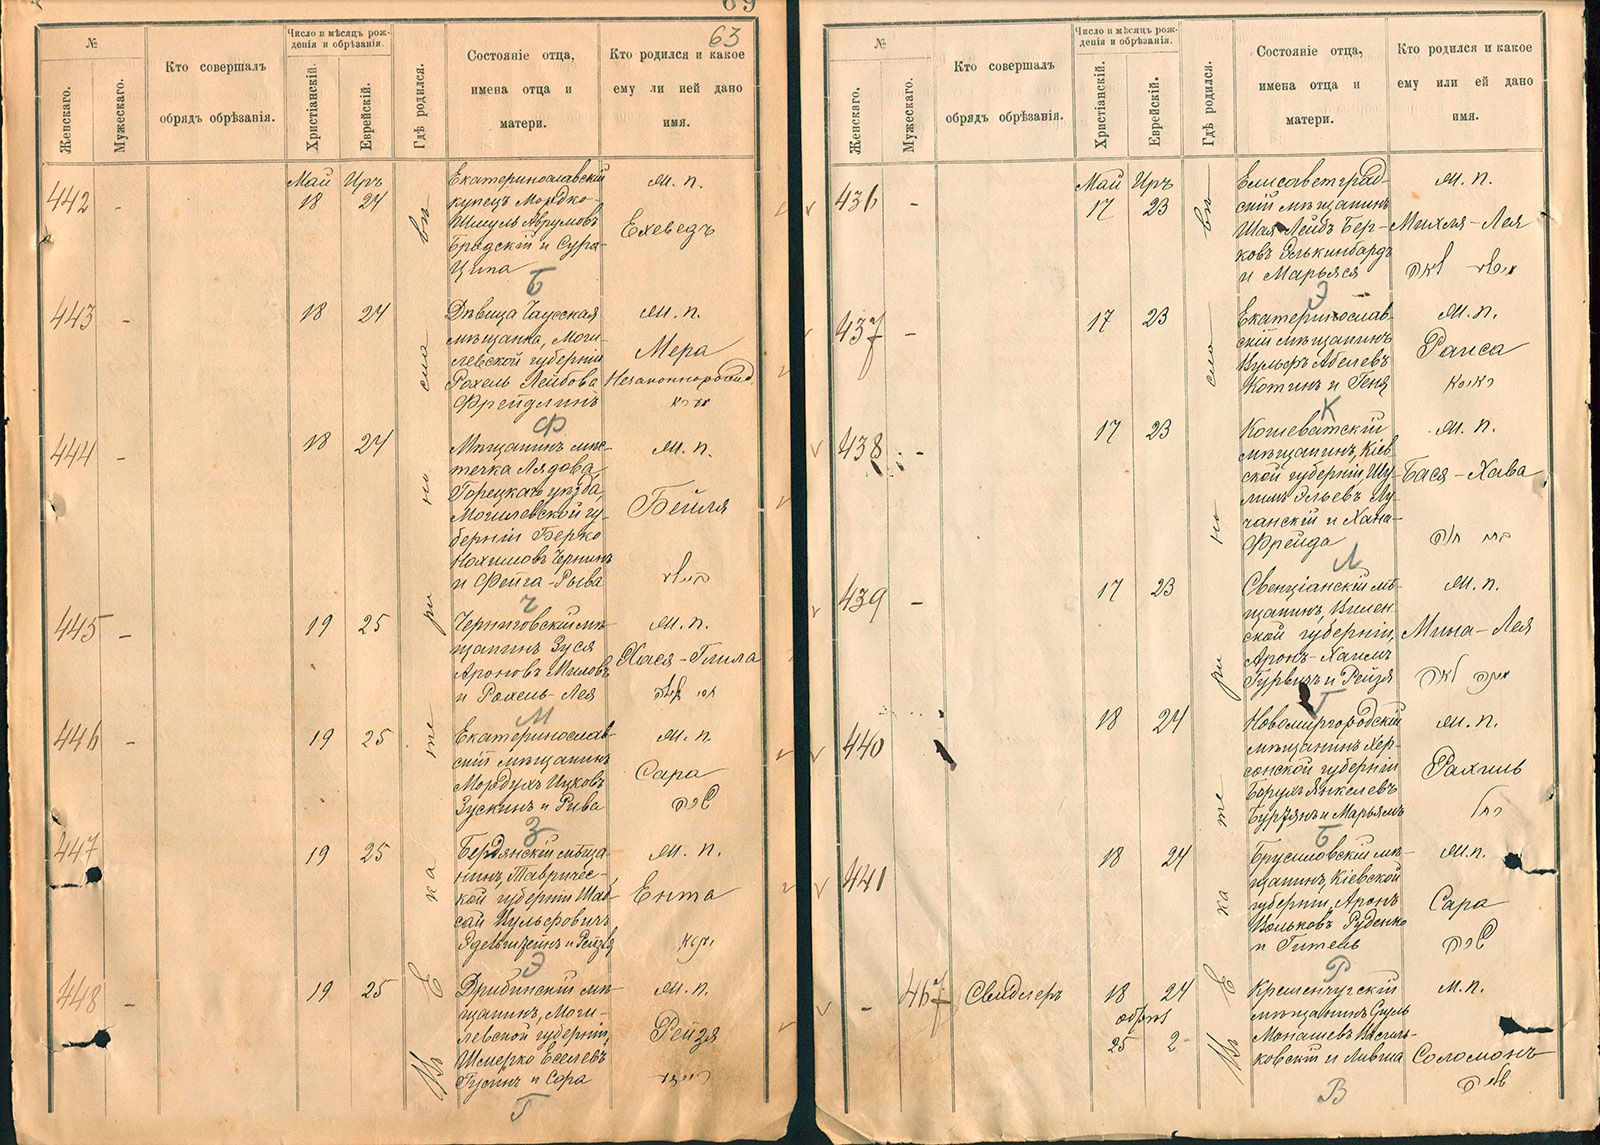 63
№
Женскаго.
Мужескаго.
Кто совершалъ
обрядъ обрѣзанія.
Число и мѣсяцъ рож-
денія и обрѣзанія.
Христіанскій.
Еврейскій.
Гдѣ родился.
Состояніе отца,
имена отца и
матери.
Кто родился и какое
ему ли ией дано
имя.
Въ Екатеринославѣ
442
-
Май Иръ
18 24
Екатеринославскій
купецъ Мордко-
Шмуль Аврумовъ
Бродскій и Сура-
Ципа
Б
м. п.
Ехеведъ
443
-
18 24
Дѣвица Чаусская
мѣщанка, Моги-
левской губерніи
Рохель Лейбова
Фрейдлинъ
Ф
м. п.
Мера
444
-
18 24
Мѣщанинъ мѣс-
течка Лядова
Горецкаго уѣзда,
Могилевской гу-
берніи Берко
Нохимовъ Чернинъ
и Фейга-Рыва
Ч
м. п.
Бейля
445
-
19 25
Черниговскій мѣ-
щанинъ Зуся
Ароновъ Миловъ
и Рохель-Лея
М
м. п.
Хася-Гмила
446
-
19 25
Екатеринослав-
скій мѣщанинъ
Мордухъ Ицковъ
Зускинъ и Рива
З
м. п.
Сара
שרה
447
19 25
Бердянскій мѣща-
нинъ, Тавричес-
кой губерніи Шаб-
сай Вульфовичъ
Эдельштейнъ и Рейзя
Э
м. п.
Ента
448
-
19 25
Дрибинскій мѣ-
щанинъ, Моги-
левской губерніи,
Шмерко Еселевъ
Гусинъ и Сора
Г
м. п.
Рейзя
№
Женскаго.
Мужескаго.
Кто совершалъ
обрядъ обрѣзанія.
Число и мѣсяцъ рож-
денія и обрѣзанія.
Христіанскій.
Еврейскій.
Гдѣ родился.
Состояніе отца,
имена отца и
матери.
Кто родился и какое
ему или ей дано
имя.
Въ Екатеринославѣ
436
-
Май Иръ
17 23
Елисаветград-
скій мѣщанинъ
Шая-Лейбъ Бер-
ковъ Элькинбардъ
и Марьяся
Э
м. п.
Михля-Лея
437
-
17 23
Екатеринослав-
скій мѣщанинъ
Вульфъ Абелевъ
Котинъ и Геня
К
м. п.
Раиса
438
-
17 23
Кошеватскій
мѣщанинъ, Кіев-
ской губерніи, Шу-
лимъ Эльевъ Лу-
чанскій и Хана-
Фрейда
Л
м. п.
Бася-Хава
439
-
17 23
Свенціанскій мѣ-
щанинъ, Вилен-
ской губерніи,
Аронъ-Хаимъ
Гурвичъ и Рейзя
Г
м. п.
Мина-Лея
440
18 24
Новомиргородскій
мѣщанинъ Хер-
сонской губерніи
Борухъ Янкелевъ
Бурдянъ и Марьямъ
Б
м. п.
Рахиль
רחל
441
18 24
Брусиловскій мѣ-
щанинъ, Кіевской
губерніи, Аронъ
Вольковъ Руденко
и Гитель
Р
м. п.
Сара
שרה
-
467
Свидлеръ
18 24
обрѣз
25 2
Кременчугскій
мѣщанинъ Сруль
Монашевъ Василь-
ковскій и Ливша
В
м. п.
Соломонъ